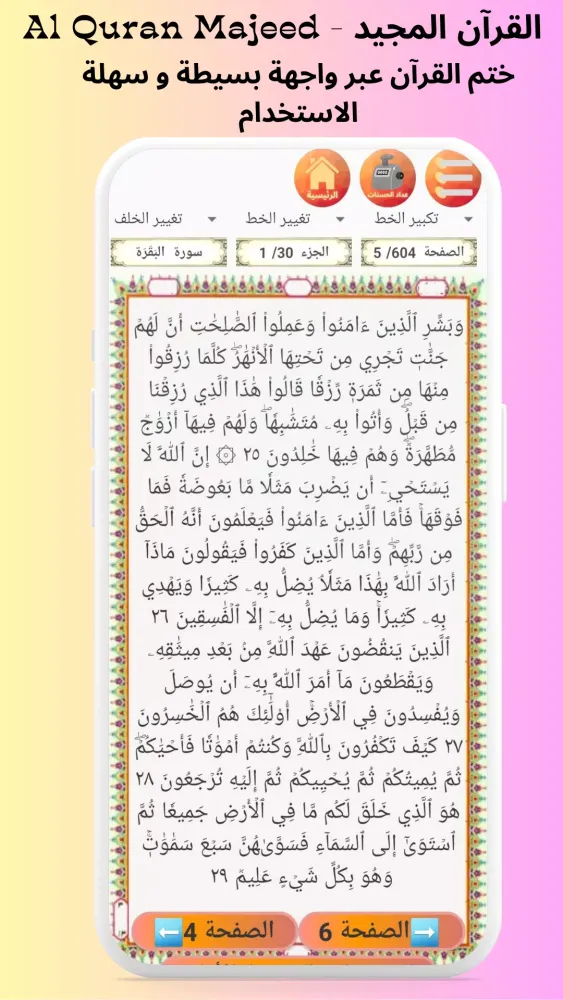 Al Quran Majeed - القرآن المجيد
ختم القرآن عبر واجهة بسيطة و سهلة
الاستخدام
عداد الحسنات
الرئيسية
تكبير الخط
تغيير الخط
تغيير الخلف
الصفحة 604/ 5
الجزء 30/ 1
سورة البقرة
وَبَشِّرِ ٱلَّذِينَ ءَامَنُواْ وَعَمِلُواْ ٱلصَّٰلِحَٰتِ أَنَّ لَهُمۡ
جَنَّٰتٖ تَجۡرِي مِن تَحۡتِهَا ٱلۡأَنۡهَٰرُۖ كُلَّمَا رُزِقُواْ
مِنۡهَا مِن ثَمَرَةٖ رِّزۡقٗا قَالُواْ هَٰذَا ٱلَّذِي رُزِقۡنَا
مِن قَبۡلُۖ وَأُتُواْ بِهِۦ مُتَشَٰبِهٗاۖ وَلَهُمۡ فِيهَآ أَزۡوَٰجٞ
مُّطَهَّرَةٞۖ وَهُمۡ فِيهَا خَٰلِدُونَ ٢٥ ۞ إِنَّ ٱللَّهَ لَا
يَسۡتَحۡيِۦٓ أَن يَضۡرِبَ مَثَلٗا مَّا بَعُوضَةٗ فَمَا
فَوۡقَهَاۚ فَأَمَّا ٱلَّذِينَ ءَامَنُواْ فَيَعۡلَمُونَ أَنَّهُ ٱلۡحَقُّ
مِن رَّبِّهِمۡۖ وَأَمَّا ٱلَّذِينَ كَفَرُواْ فَيَقُولُونَ مَاذَآ
أَرَادَ ٱللَّهُ بِهَٰذَا مَثَلٗاۘ يُضِلُّ بِهِۦ كَثِيرٗا وَيَهۡدِي
بِهِۦ كَثِيرٗاۚ وَمَا يُضِلُّ بِهِۦٓ إِلَّا ٱلۡفَٰسِقِينَ ٢٦
ٱلَّذِينَ يَنقُضُونَ عَهۡدَ ٱللَّهِ مِنۢ بَعۡدِ مِيثَٰقِهِۦ
وَيَقۡطَعُونَ مَآ أَمَرَ ٱللَّهُ بِهِۦٓ أَن يُوصَلَ
وَيُفۡسِدُونَ فِي ٱلۡأَرۡضِۚ أُوْلَٰٓئِكَ هُمُ ٱلۡخَٰسِرُونَ
٢٧ كَيۡفَ تَكۡفُرُونَ بِٱللَّهِ وَكُنتُمۡ أَمۡوَٰتٗا فَأَحۡيَٰكُمۡۖ
ثُمَّ يُمِيتُكُمۡ ثُمَّ يُحۡيِيكُمۡ ثُمَّ إِلَيۡهِ تُرۡجَعُونَ ٢٨
هُوَ ٱلَّذِي خَلَقَ لَكُم مَّا فِي ٱلۡأَرۡضِ جَمِيعٗا ثُمَّ
ٱسۡتَوَىٰٓ إِلَى ٱلسَّمَآءِ فَسَوَّىٰهُنَّ سَبۡعَ سَمَٰوَٰتٖۚ
وَهُوَ بِكُلِّ شَيۡءٍ عَلِيمٞ ٢٩
الصفحة 6
الصفحة 4